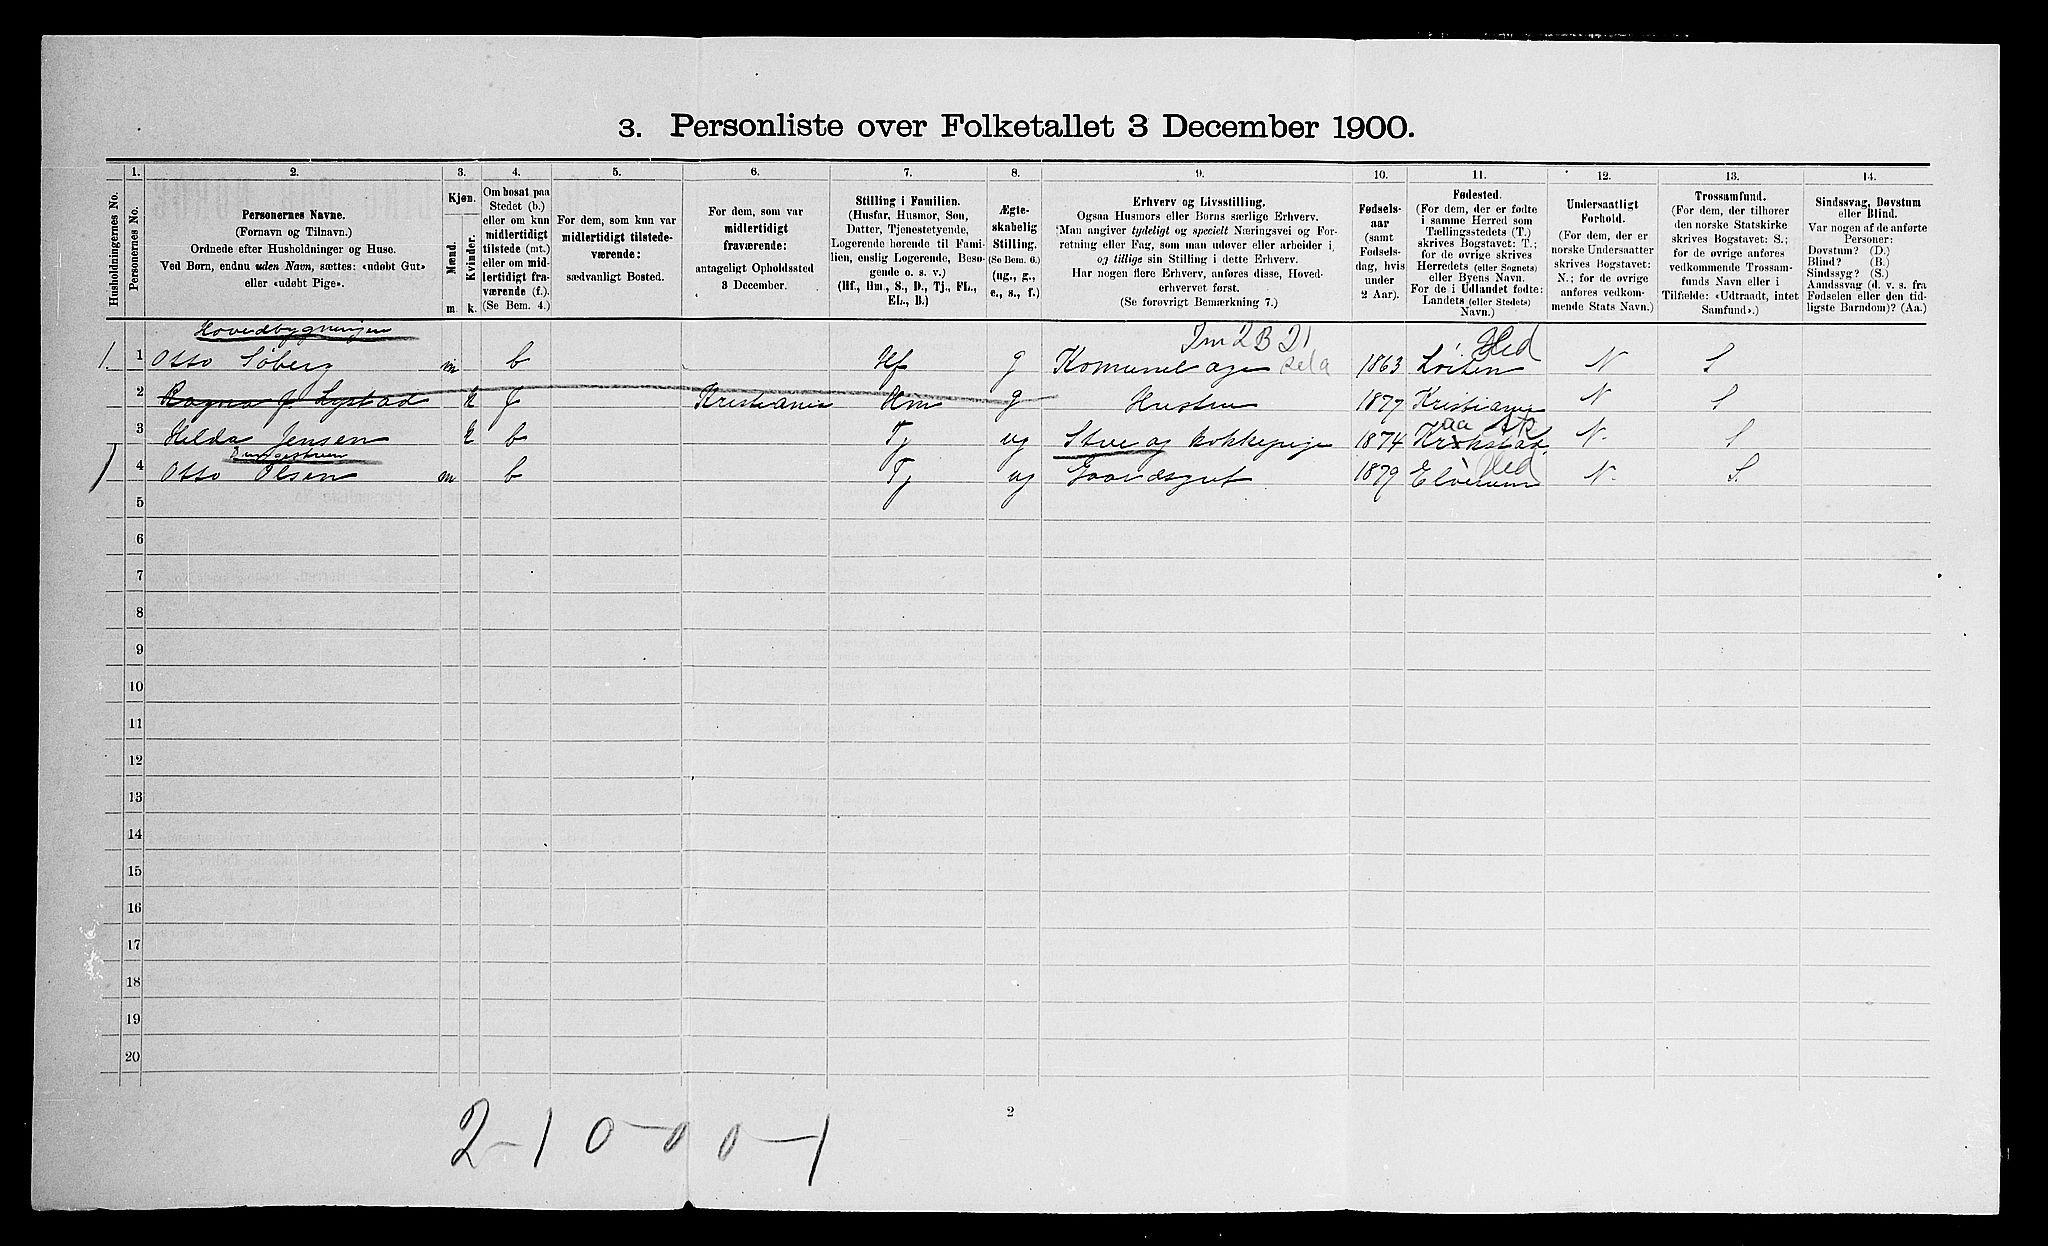 3. Personliste over Folketallet 3 December 1900.
Husholdningernes No.
1.
Personernes No.
2.
Personernes Navne.
(Fornavn og Tilnavn.)
Ordnede efter Husholdninger og Huse.
Ved Børn, endnu uden Navn, sættes: «udøbt Gut»
eller «udøbt Pige».
3.
Kjøn.
Mænd.
Kvinder.
m.
k.
4.
Om bosat paa
Stedet (b.)
eller om kun
midlertidigt
tilstede (mt.)
eller om mid-
lertidigt fra-
værende (f.).
(Se Bem. 4.)
5.
For dem, som kun var
midlertidigt tilstede-
værende:
sædvanligt Bosted.
6.
For dem, som var
midlertidigt
fraværende:
antageligt Opholdssted
3 December.
7.
Stilling i Familien.
(Husfar, Husmor, Søn,
Datter, Tjenestetyende,
Logerende hørende til Fami-
lien, enslig Logerende, Besø-
gende o. s. v.)
(Hf., Hm., S., D., Tj., FL.,
EL., B.)
8.
Ægte-
skabelig
Stilling.
(Se Bem. 6.)
(ug., g.,
e., s., f.)
9.
Erhverv og Livsstilling.
Ogsaa Husmors eller Børns særlige Erhverv.
Man angiver tydeligt og specielt Næringsvei og For-
retning eller Fag, som man udøver eller arbeider i,
og tillige sin Stilling i dette Erhverv.
Har nogen flere Erhverv, anføres disse, Hoved-
erhvervet først.
(Se forøvrigt Bemærkning 7.)
10.
Fødsels-
aar
(samt
Fødsels-
dag, hvis
under
2 Aar).
11.
Fødested.
(For dem, der er fødte
i samme Herred som
Tællingsstedets (T.)
skrives Bogstavet: T.;
for de øvrige skrives
Herredets (eller Sognets)
eller Byens Navn.
For de i Udlandet fødte:
Landets (eller Stedets)
Navn.)
12.
Undersaatligt
Forhold.
(For dem, der er
norske Undersaatter
skrives Bogstavet:
N.; for de øvrige
anføres vedkom-
mende Stats Navn.)
13.
Trossamfund.
(For dem, der tilhører
den norske Statskirke
skrives Bogstavet: S.;
for de øvrige anføres
vedkommende Trossam-
funds Navn eller i
Tilfælde: «Udtraadt, intet
Samfund».)
14.
Sindssvag, Døvstum
eller Blind.
Var nogen af de anførte
Personer:
Døvstum? (D.)
Blind? (B.)
Sindssyg? (S.)
Aandssvag (d. v. s. fra
Fødselen eller den tid-
ligste Barndom)? (Aa.)
Hovedbygningen
1. 1 Otto Söberg m b Hf g 1863 Löiten Hed N S
2 Ragna J. Lystad k f Kristiania Hm g Hustru 1877 Kristiania N S
3 Hilda Jensen k b Tj ug Stue og kokkepige 1874 aa Ak N. S
4 Otto Olsen m b Tj ug Gaardsgut 1879 Elverum Hed N. S.
5
6
7
8
9
10
11
12
13
14
15
16
17
18
19
20
2
2-1 0-0 0-1